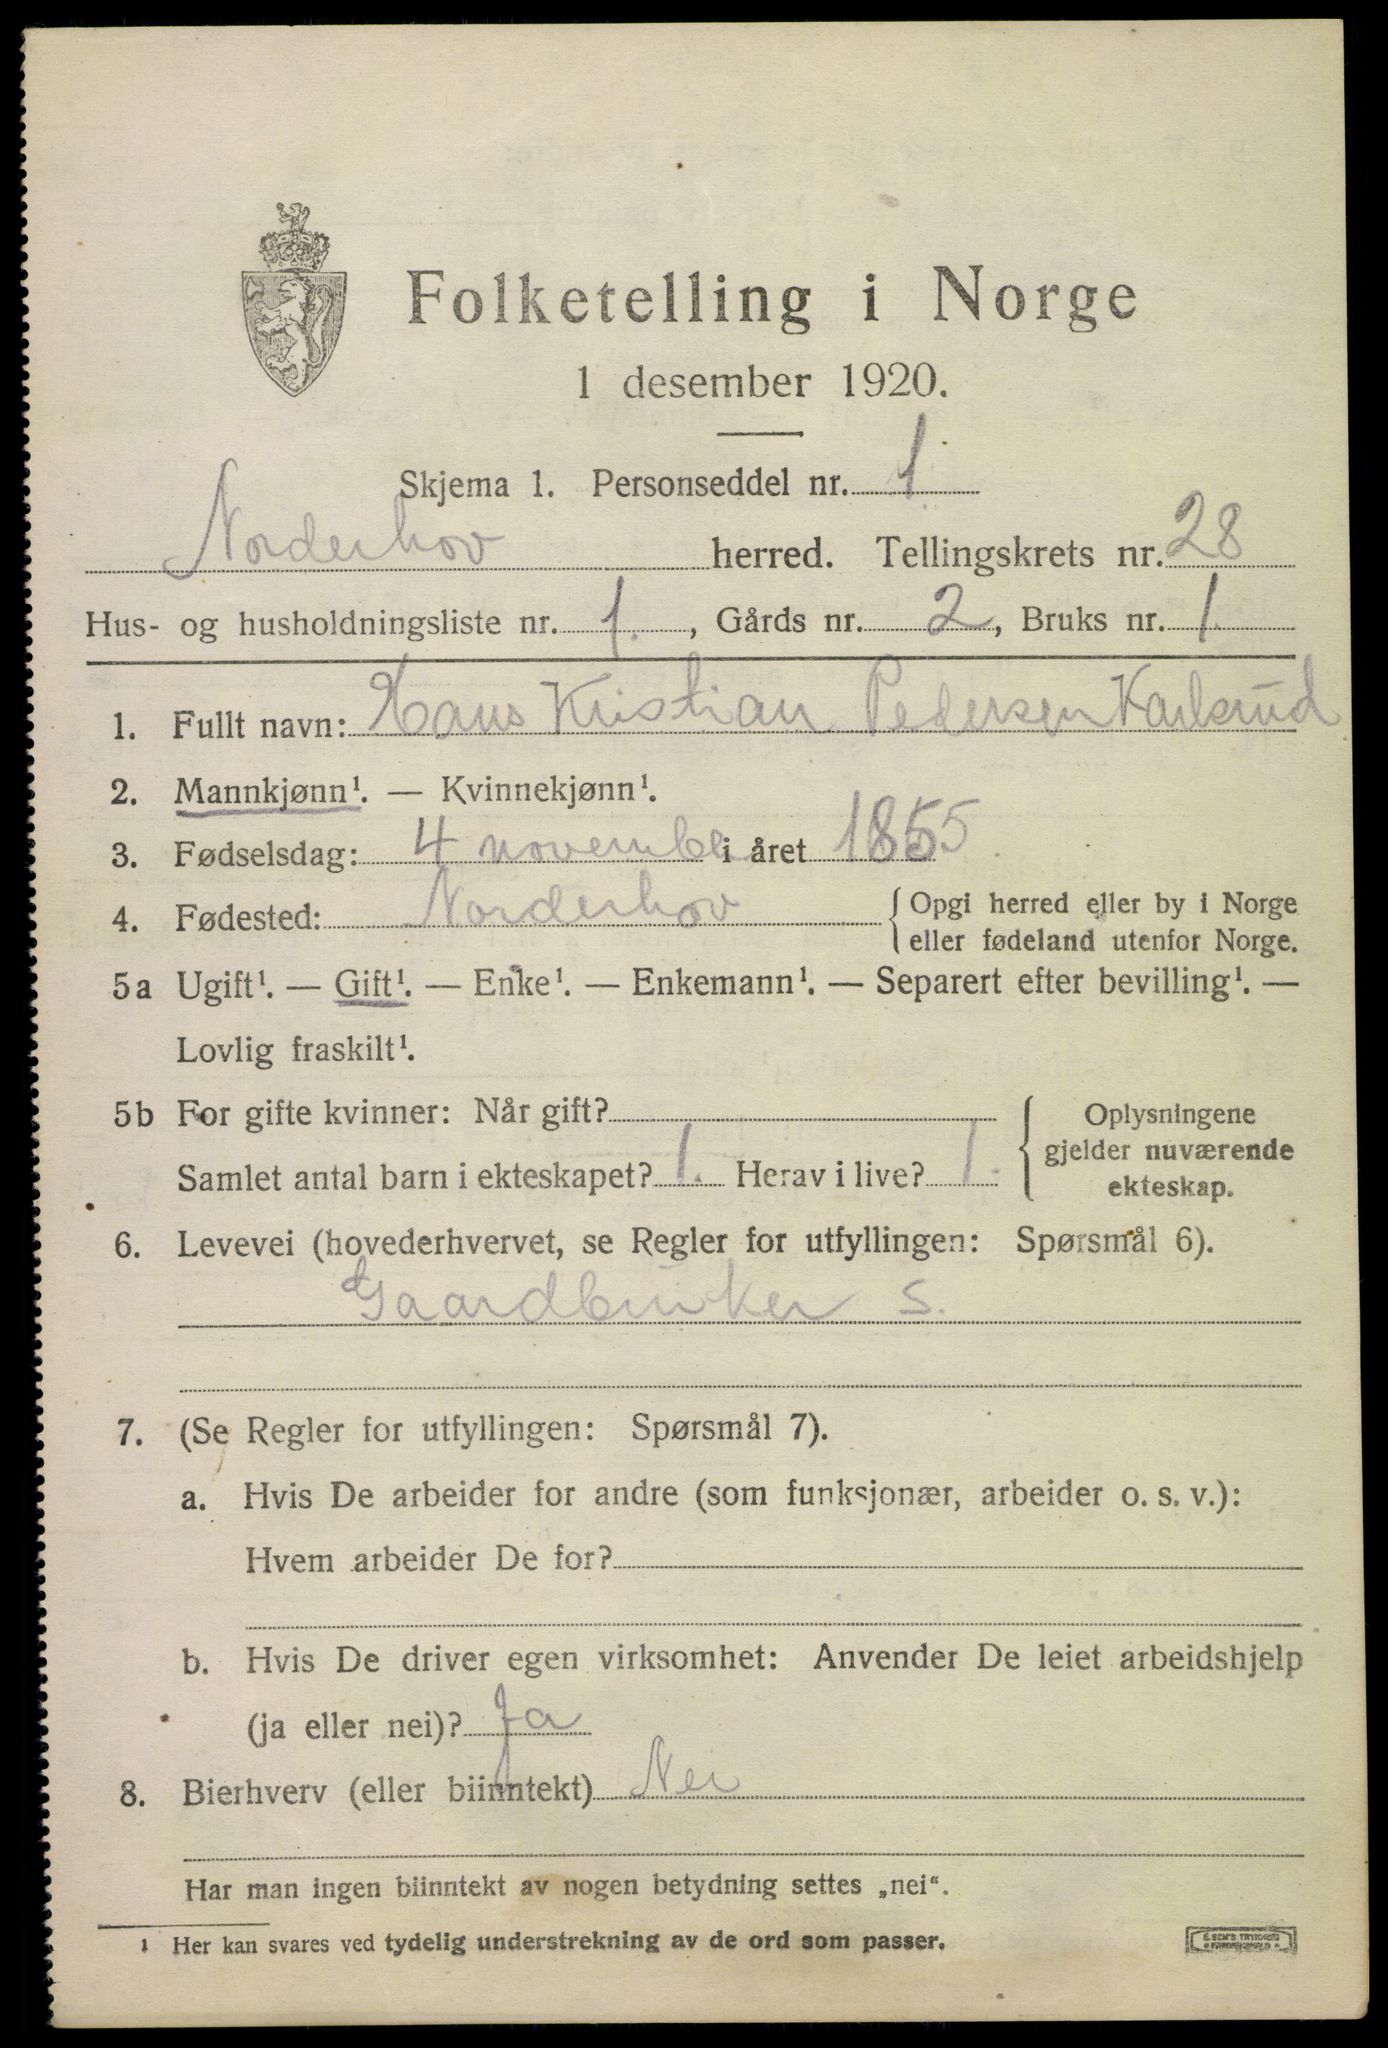 Folketelling i Norge
1 desember 1920.
Skjema 1. Personseddel nr. 1
Norderhov herred. Tellingskrets nr. 28
Hus- og husholdningsliste nr. 1., Gårds nr. 2, Bruks nr. 1.
1. Fullt navn: Hans Kristian Pedersen Karlsrud
2. Mannkjønn¹. — Kvinnekjønn¹.
3. Fødselsdag: 4 november i året 1855
4. Fødested: Norderhov { Opgi herred eller by i Norge
eller fødeland utenfor Norge.
5a Ugift¹. — Gift¹. — Enke¹. — Enkemann¹. — Separert efter bevilling¹. —
Lovlig fraskilt¹.
5b For gifte kvinner: Når gift?
Samlet antal barn i ekteskapet? 1. Herav i live? 1.
Oplysningene
gjelder nuværende
ekteskap.
6. Levevei (hovederhvervet, se Regler for utfyllingen: Spørsmål 6).
Gaardbruker s.
7. (Se Regler for utfyllingen: Spørsmål 7).
a. Hvis De arbeider for andre (som funksjonær, arbeider o. s. v.):
Hvem arbeider De for?
b. Hvis De driver egen virksomhet: Anvender De leiet arbeidshjelp
(ja eller nei)? Ja
8. Bierhverv (eller biinntekt) Nei
Har man ingen biinntekt av nogen betydning settes „nei“.
1 Her kan svares ved tydelig understrekning av de ord som passer.